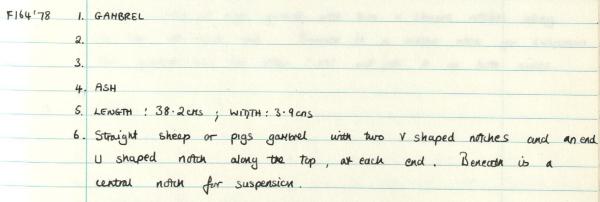 F164'78 1. GAMBREL
2.
3.
4. ASH
5. LENGTH : 38.2cms ; WIDTH : 3.9cms
6. Straight sheep or pigs gambrel with two V shaped notches and an end
U shaped notch along the top, at each end. Beneath is a
central notch for suspension.